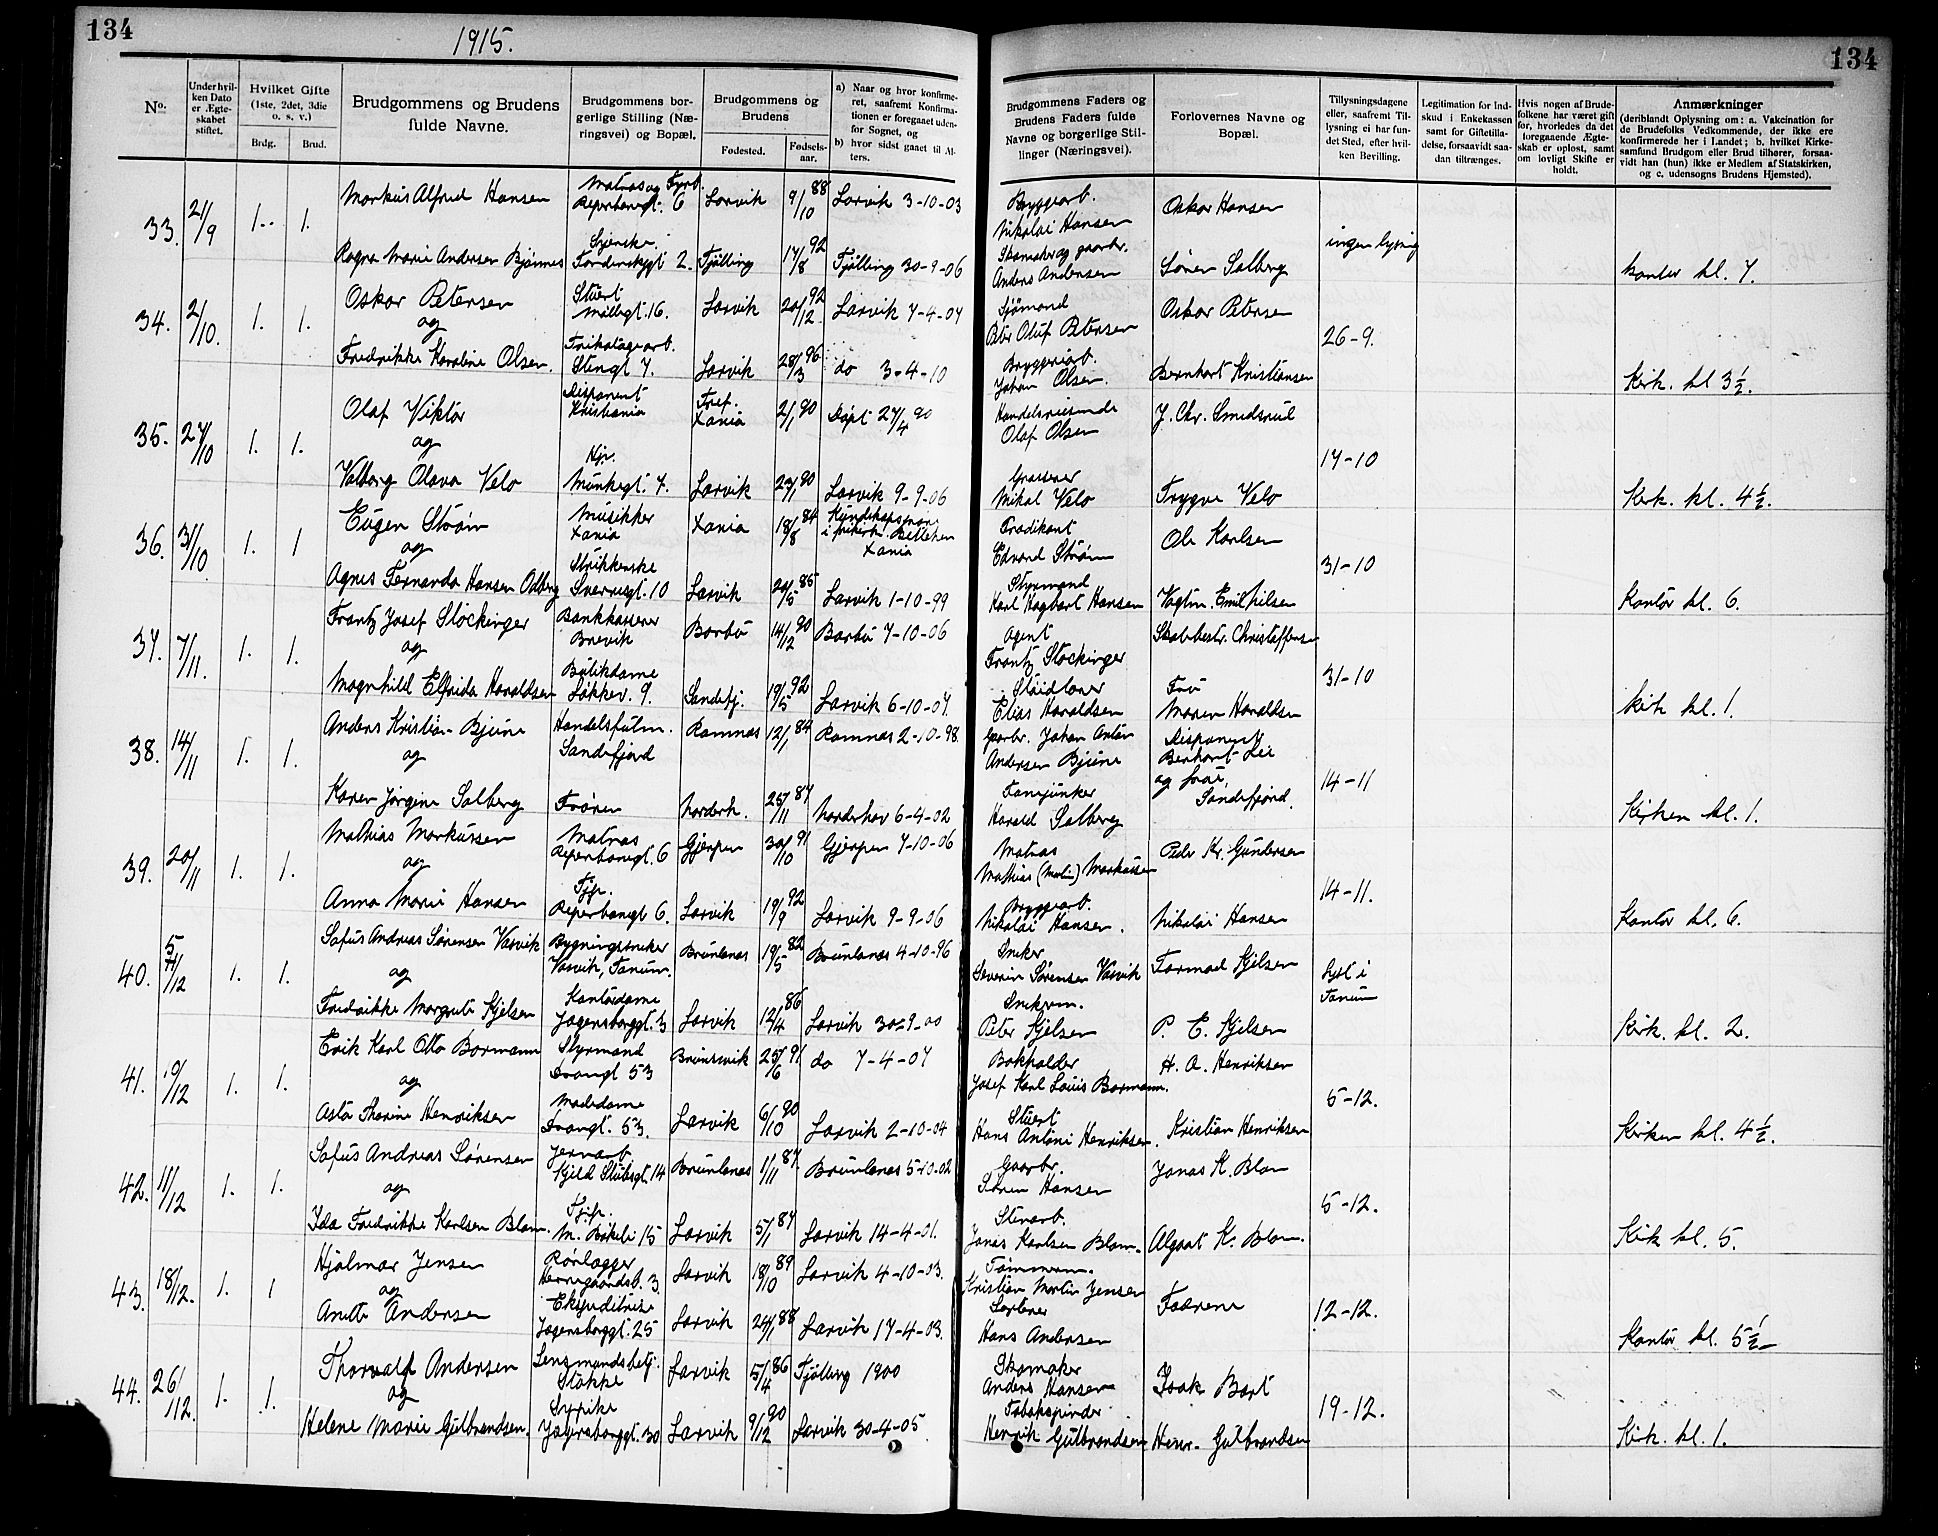 134
1915.
134
No.
Under hvil-
ken Dato
er Ægte-
skabet
stiftet.
Hvilket Gifte
(1ste, 2det, 3die
o. s. v.)
Brdg.
Brud.
Brudgommens og Brudens
fulde Navne.
Brudgommens bor-
gerlige Stilling (Næ-
ringsvei) og Bopæl.
Brudgommens og
Brudens
Fødested.
Fødsels-
aar.
a) Naar og hvor konfirme-
ret, saafremt Konfirma-
tionen er foregaaet uden-
for Sognet, og
b) hvor sidst gaaet til Al-
ters.
Brudgommens Faders og
Brudens Faders fulde
Navne og borgerlige Stil-
linger (Næringsvei).
Forlovernes Navne og
Bopæl.
Tillysningsdagene
eller, saafremt Til-
lysning ei har fun-
det Sted, efter hvil-
ken Bevilling.
Legitimation for Ind-
skud i Enkekassen
samt for Giftetilla-
delse, forsaavidt saa-
dan tiltrænges.
Hvis nogen af Brude-
folkene har været gift
før, hvorledes da det
foregaaende Ægte-
skab er opløst, samt
om lovligt Skifte er
holdt.
Anmærkninger
(deriblandt Oplysning om: a. Vakcination for
de Brudefolks Vedkommende, der ikke ere
konfirmerede her i Landet; b. hvilket Kirke-
samfund Brudgom eller Brud tilhører, forsaa-
vidt han (hun) ikke er Medlem af Statskirken,
og c. udensogns Brudens Hjemsted).
33. 21/9 1. 1. Markus Alfred Hansen Matros og Fyrb. Reperbanegt. 6 Larvik 9/10 88 Larvik 3-10-03 Bryggearb. Nikolai Hansen Oskar Hansen
ingen lysning
Ragna Marie Andersen Bjønnes Torderskygt 2. Fjølling 17/8 92 Tjølling 30-9-06 Skomaker og gaarbr. Anders Andersen Søren Solberg kontor kl. 7.
34. 2/10. 1. 1. Oskar Petersen Stuert Møllegt. 16. Larvik 20/12 92 Larvik 7-4-07 Sjømand Peter Oluf Petersen Oskar Petersen
og
26-9.
Fredrikke Karoline Olsen. Trikotagearb. Stengt 7. Larvik 28/3 96 do 3-4-10 Bryggeriarb. Johan Olsen. Bernhart Kristiansen Kirk. kl 3½.
35. 27/10 1. 1. Olaf Viktor Disponent Kristiania Xania 2/1 90 Døpt 27/4 90 Handelsreisende Olaf Olsen J. Chr. Smedsrud
og
17-10
Valborg Olava Velo Hjr. Munkegt. 7. Larvik 23/1 90 Larvik 9-9-06 Mikal Velo Trygve Velo Kirk. kl. 4½.
36. 31/10 1. 1 Eugen Strøm Musikker Xania Xania 18/8 84 Xania Prædikant Edvard Strøm Ole Karlsen
og
31-10
Agnes Fernanda Hansen Odberg Strikkerske Sverresgt. 10 Larvik 20/5 85 Larvik 1-10-99 Styrmand Karl Hagbart Hansen Vagtm. Emil Nilsen Kontor kl. 6.
37. 7/11. 1. 1. Frantz Josef Stockinger Bankkasserer Brevik Barbu 14/12 90 Barbu 7-10-06 Agent Frantz Stockinger Skolebestr. Christoffersen
og
31-10
Magnhild Elfrida Haraldsen Butikdame Løkkev. 9. Sandefj. 19/5 92 Larvik 6-10-07. Elias Haraldsen Fru Maren Haraldsen kirk kl. 1.
38. 14/11 1. 1. Anders Kristian Bjune Handelsfulm. Sandefjord Ramnæs 12/1 84 Ramnæs 2-10-98. Gaarbr. Johan Anton Andersen Bjune Disponent Berhart Lie og frue, Sandefjord.
og
14-11
Karen Jørgine Solberg Frøken Norderh. 25/11 87 Norderhov 6-4-02 Fanejunker Harald Solberg Kirken kl. 1.
39. 20/11 1. 1. Mathias Markussen Matros Reperbanegt. 6 Gjerpen 30/10 91 Gjerpen 7-10-06 Matros Mathias (Martin) Markussen Peder Kr. Gundersen
og
14-11.
Anna Marie Hansen Tjp. Reperbangt 6. Larvik 19/9 92 Larvik 9-9-06 Bryggearb. Nikolai Hansen. Nikolai Hansen Kontor kl. 6.
40. 5/12 1. 1. Sofus Andreas Sørensen Vasvik Bygningssneker Vasvik, Tanum. Brunlanes 19/5 82 Brunlanes 4-10-96 Sneker Severin Sørensen Vasvik Tormod Kjelsen
og
lyst i Tanum
Fredrikke Margrete Kjelsen Kontordame Jegersborggt. 3 Larvik 12/4 86 Larvik 30-9-00 Snekrem. Peter Kjelsen P. E. Kjelsen Kirk. kl. 2.
41. 10/12 1. 1. Erik Karl Otto Bormann Styrmand Trangt 53 Brunsvik 25/6 91 do 7-4-07 Bokholder Josef Karl Louis Bormann. H. A. Henriksen
og
5-12.
Asta Tharine Henriksen Modedame Trangt. 53. Larvik 6/10 90 Larvik 2-10-04 Stuert Hans Antoni Henriksen. Kristian Henriksen Kirken kl. 4½.
42. 11/12 1. 1. Sofus Andreas Sørensen Jernarb. Kjeld Stubsgt. 14 Brunlanes 1/11 87. Brunlanes 5-10-02 Gaarbr. Søren Hansen Jonas K. Blom
og
5-12.
Ida Fredrikke Karlsen Blom. Tjp. M. Bøkeli 15 Larvik 5/1 87 Larvik 14-4-01. Stenarb. Jonas Karlsen Blom. Algot K. Blom. Kirk kl. 5.
43. 18/12. 1. 1 Hjalmar Jensen Rørlægger Herregaardsb. 3 Larvik 18/10 89 Larvik 4-10-03. Tømmerm. Kristian Martin Jensen
og
Fædrene 12-12.
Anette Andersen Ekspeditrise Jegersborggt. 25 Larvik 24/1 88 Larvik 17-4-03. Hans Andersen Kontor kl. 5½
44. 26/12. 1. 1. Thorvald Andersen Lensmandsbetj. Stokke Larvik 5/4 86 Tjølling 1900 Skomaker Anders Hansen Isak Bart
og
19-12.
Helene Marie Gulbrandsen. Sypike Jegersborggt. 30 Larvik 9/12 90 Larvik 30-4-05. Tobakspinder Henrik Gulbrandsen Henr. Gulbrandsen Kirk. kl. 1.